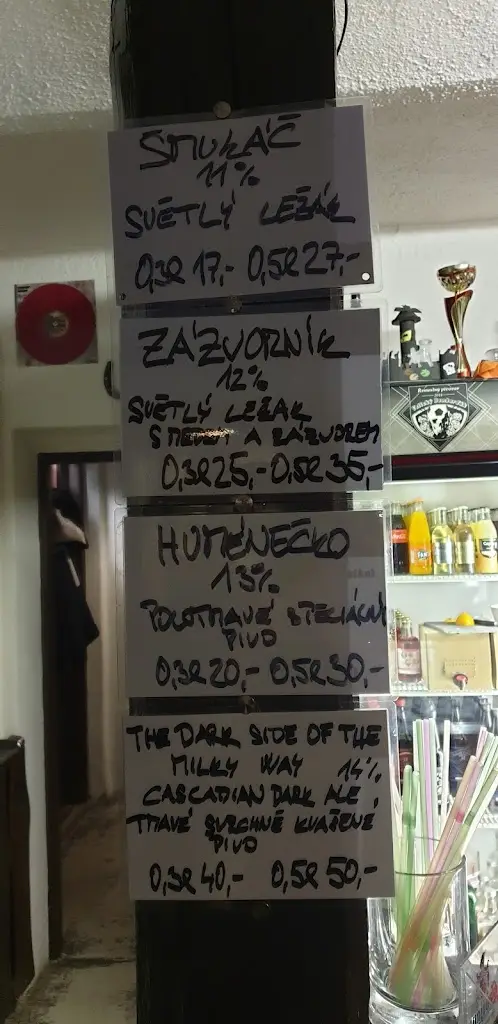 ŠMUKÁČ
11%
SVĚTLÝ LEŽÁK
0,3l 17,- 0,5l 27,-
ZÁZVORNÍK
12%
SVĚTLÝ LEŽÁK
S MEDEM A ZÁZVOREM
0,3l 25,- 0,5l 35,-
HUMÉNEČKO
13%
POLOTMAVÉ SPECIÁLNÍ
PIVO
0,3l 20,- 0,5l 30,-
THE DARK SIDE OF THE
MILKY WAY 14%
CASCADIAN DARK ALE,
TMAVÉ SVRCHNĚ KVAŠENÉ
PIVO
0,3l 40,- 0,5l 50,-